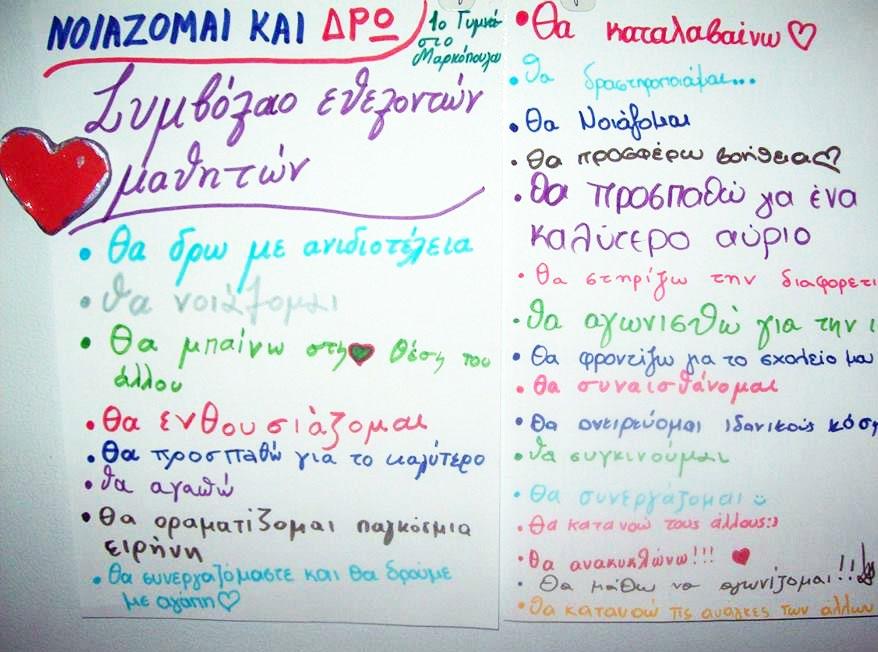 ΝΟΙΑΖΟΜΑΙ ΚΑΙ ΔΡΩ
1ο Γυμνά-
σιο
Μαρκόπουλου
Συμβόλαιο εθελοντών
μαθητών
• θα δρω με ανιδιοτέλεια
• θα νοιάζομαι
• θα μπαίνω στη θέση του
άλλου
• θα ενθουσιάζομαι
• θα προσπαθώ για το καλύτερο
• θα αγαπώ
• θα οραματίζομαι παγκόσμια
ειρήνη
• θα συνεργαζόμαστε και θα δρούμε
με αγάπη ♡
• θα καταλαβαίνω ♡
• θα δραστηροποιούμαι...
• θα Νοιάζομαι
• θα προσφέρω βοήθεια ♡
• θα προσπαθώ για ένα
καλύτερο αύριο
• θα στηρίζω την διαφορετι
• θα αγωνισθώ για την ι
• θα φροντίζω για το σχολείο μου
• θα συναισθάνομαι
• θα ονειρεύομαι ιδανικούς κόσμ
• θα συγκινούμαι
• θα συνεργάζομαι
• θα κατανοώ τους άλλους:)
• θα ανακυκλώνω!!!
• θα μάθω να αγωνίζομαι!!
• θα κατανοώ τις ανάγκες των άλλων